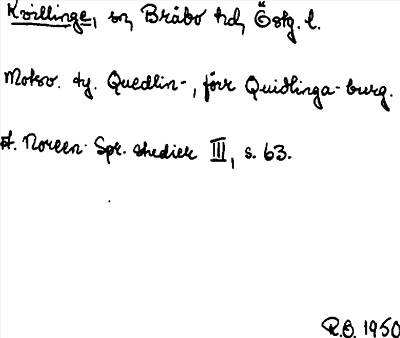 Kvillinge, sn, Bråbo hd, Östg. l.
Motsv. ty. Quedlin-, förr Quidlinga-burg.
A. Noreen Spr. studier III, s. 63.
R.O. 1950